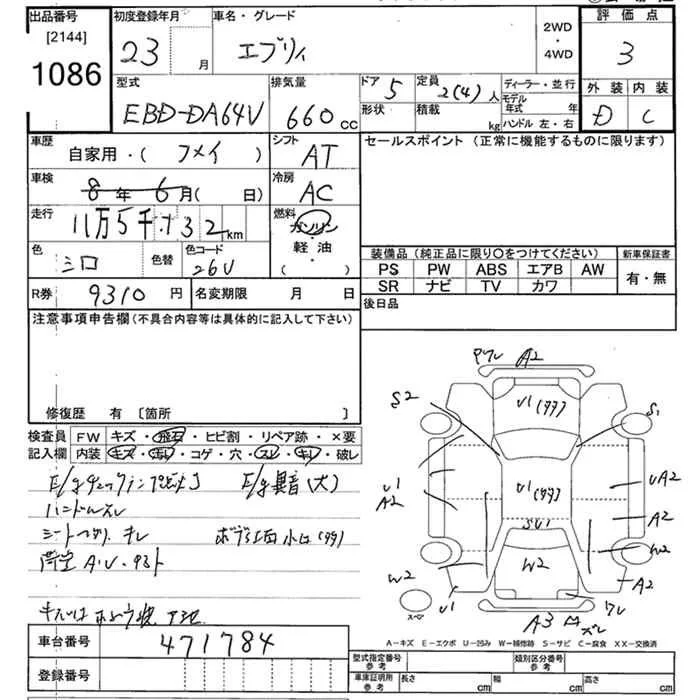 出品番号
[2144]
1086
初度登録年月
23 月
車名・グレード
エブリィ
2WD
・
4WD
評価点
3
外装 内装
D C
型式
EBD-DA64V
排気量
660 cc
ドア 5
形状
定員 2(4) 人
積載 kg
ディーラー・並行
モデル年式 年
ハンドル 左・右
車歴
自家用・( )
シフト
AT
車検
8 年 6 月( 日)
冷房
AC
走行
11万5千132 km
燃料
ガソリン
・
軽油
( )
色
シロ
色替
色コード
26U
R券 9310 円
名変期限 月 日
セールスポイント (正常に機能するものに限ります)
装備品 (純正品に限り〇をつけてください)
PS PW ABS エアB AW
SR ナビ TV カワ
新車保証書
有・無
後日品
注意事項申告欄(不具合内容等は具体的に記入して下さい)
修復歴 有 〔箇所 〕
検査員記入欄
FW キズ・飛石・ヒビ割・リペア跡・×要
内装 キズ・汚レ・コゲ・穴・スレ・キレ・破レ
E/g異音(大)
ハンドルスレ
A2
S2
U1(タタ)
S1
U1
A2
U1(タタ)
UA2
A2
SU1
W2
W2
W2
A2
U1
スペア
A3
A-キズ E-エクボ U-凹み W-補修跡 S-サビ C-腐食 XX-交換済
車台番号 471784
登録番号
型式指定番号 参考
類別区分番号 参考
車庫証明所 参考
長さ cm 幅 cm 高さ cm